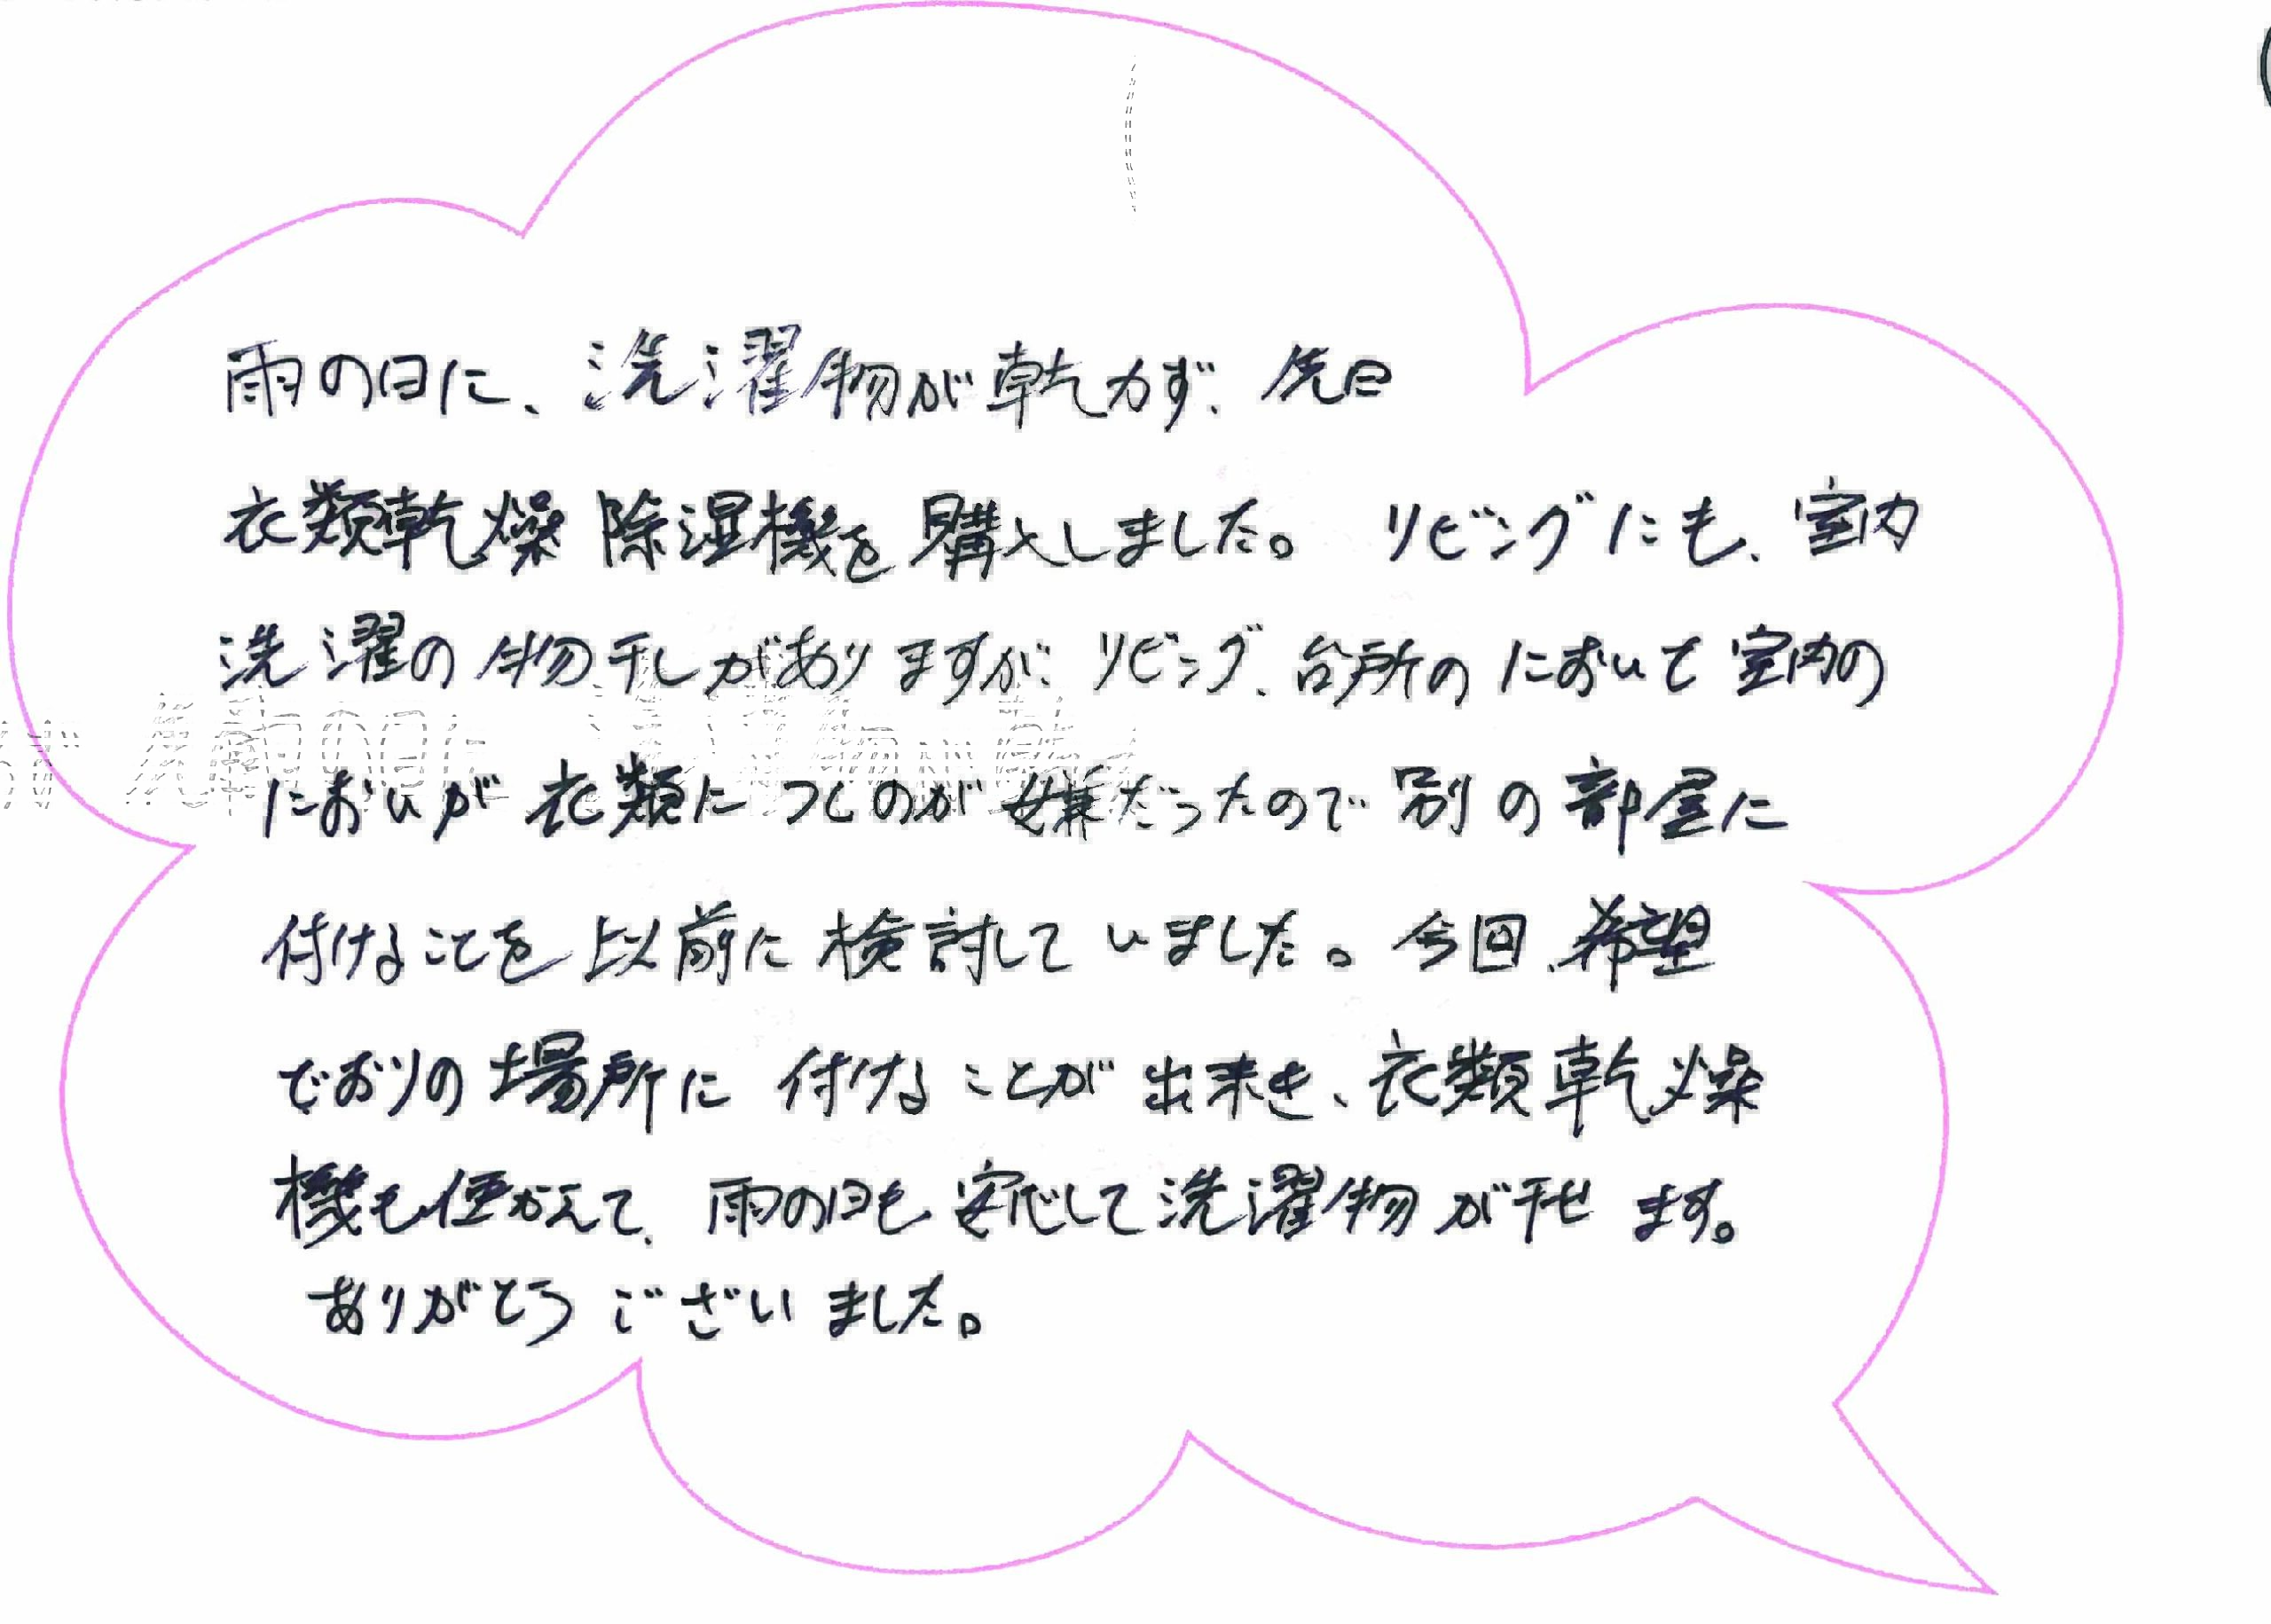 雨の日に、洗濯物が乾かず、先日
衣類乾燥除湿機を購入しました。リビングにも、室内
洗濯の物干しがありますが、リビング、台所のにおいで室内の
においが衣類につくのが嫌だったので別の部屋に
付けることを以前に検討していました。今回、希望
どおりの場所に付けることが出来き、衣類乾燥
機も使かえて、雨の日も安心して洗濯物が干せます。
ありがとうございました。